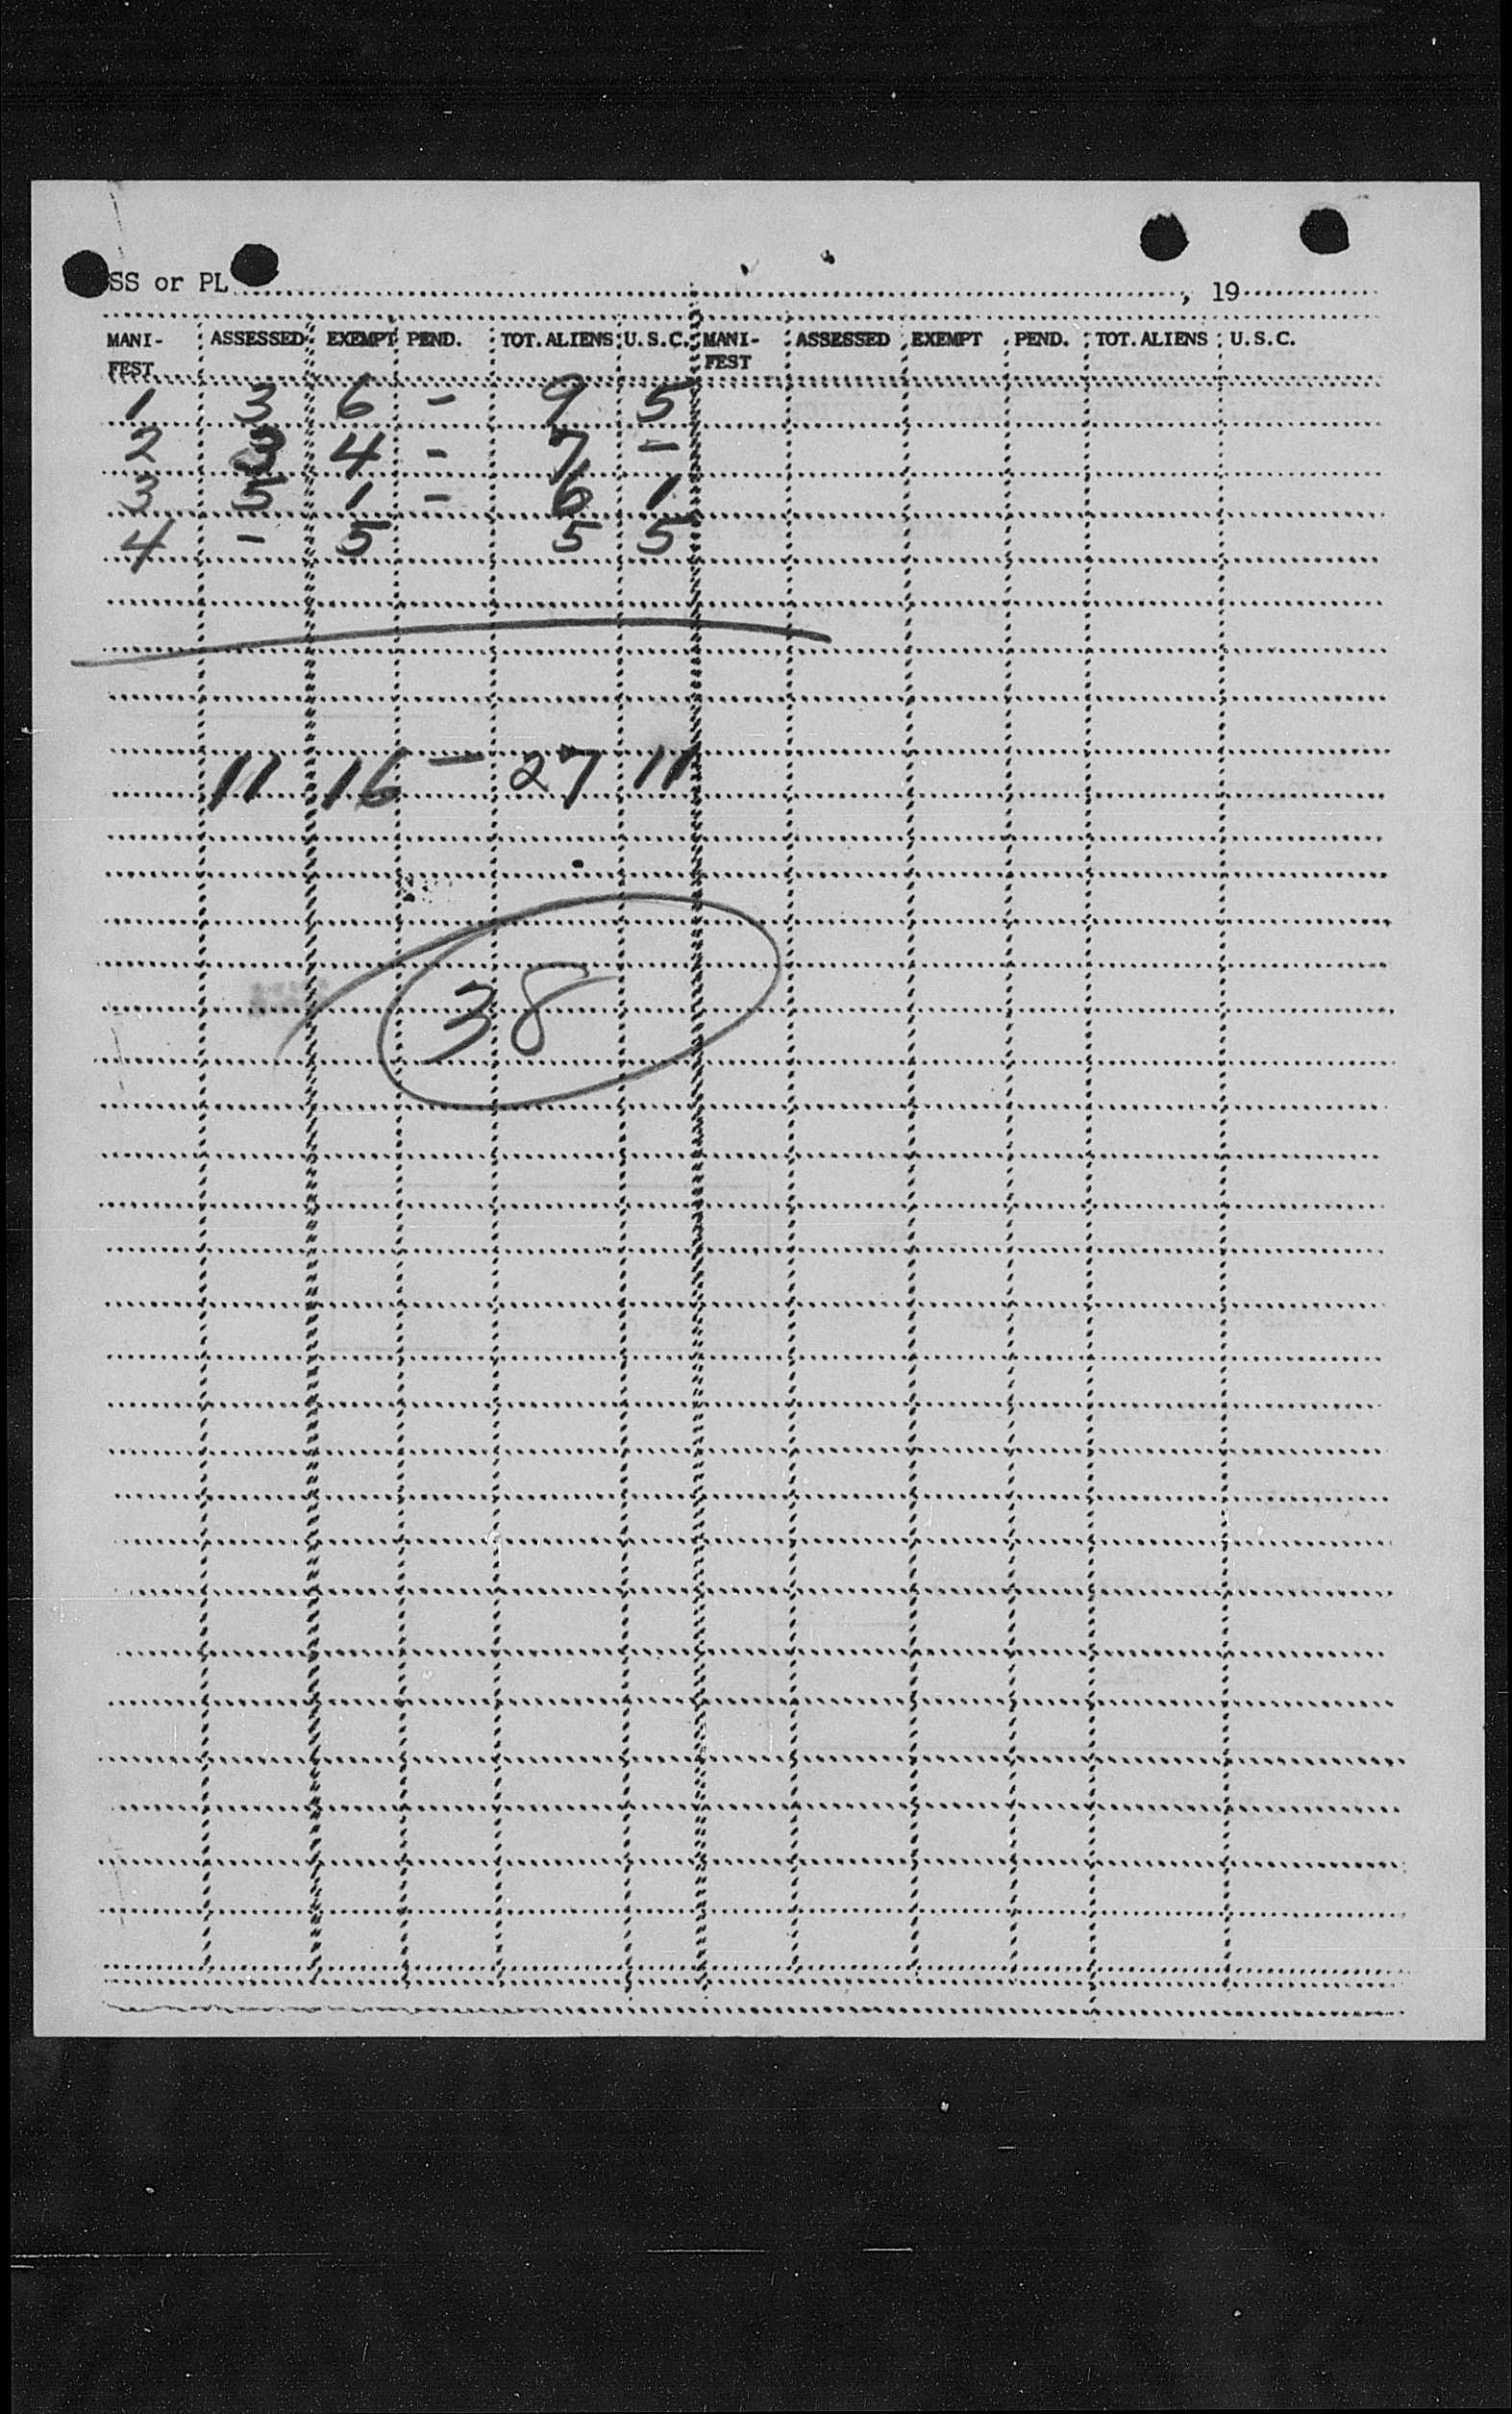 SS or PL , 19
MANI-FEST ASSESSED EXEMPT PEND. TOT. ALIENS U.S.C. MANI-FEST ASSESSED EXEMPT PEND. TOT. ALIENS U.S.C.
1 3 6 - 9 5
2 3 4 - 7 -
3 5 1 - 6 1
4 - 5 5 5
11 16 - 27 11
38